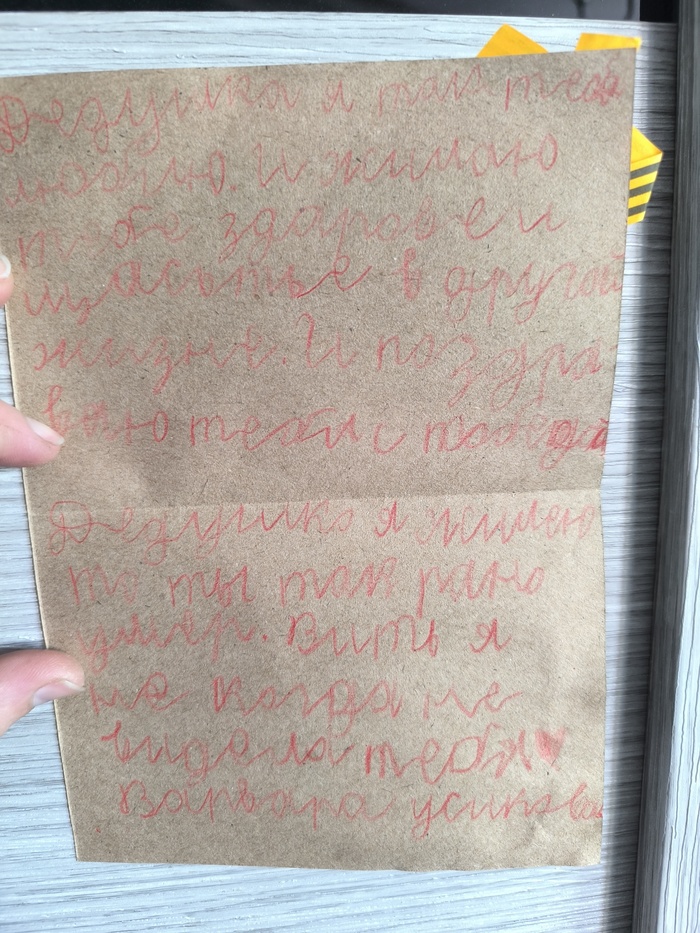 Дедушка я так тебя
люблю. И жилаю
тебе здаровея
щасьтье в другой
жизне. И поздра
ваю тебя с победай
Дедушка я жилею
то ты так рано
умер. Вить я
не когда не
видела тебя
Варвара усикова